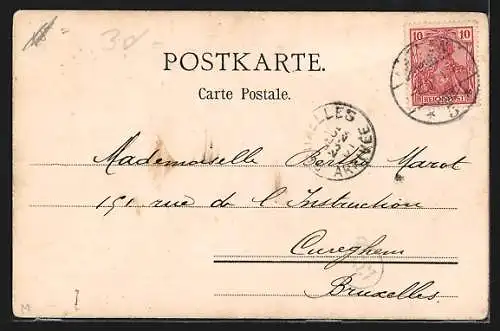 3d-
10 10
REICHSPOST
* 5
POSTKARTE.
Carte Postale.
BRUXELLES
ARRIVÉE
Mademoiselle Berthe Marot
191 rue de l'Instruction
Cureghem
Bruxelles